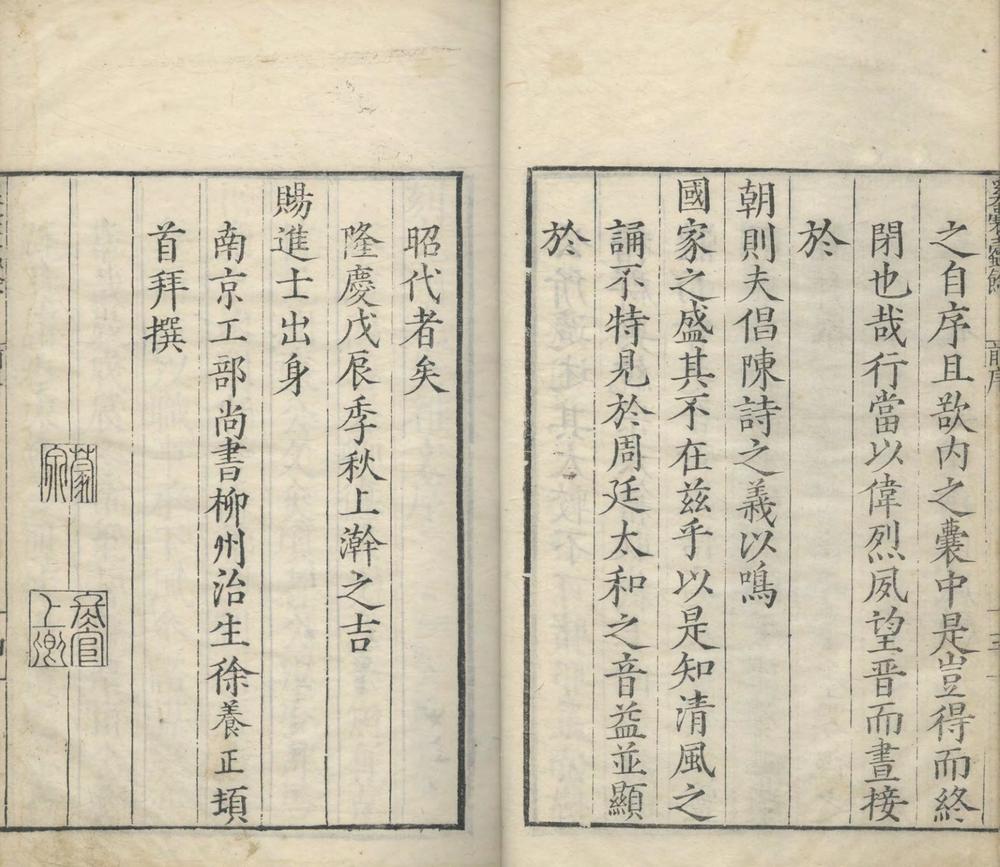 之自序且欲内之囊中是豈得而終
閉也哉行當以偉烈夙望晋而晝接
於
朝則夫倡陳詩之義以鳴
國家之盛其不在茲乎以是知清風之
誦不特見於周廷太和之音益並顯
於
昭代者矣
隆慶戊辰季秋上澣之吉
賜進士出身
南京工部尚書柳州治生徐養正頓
首拜撰